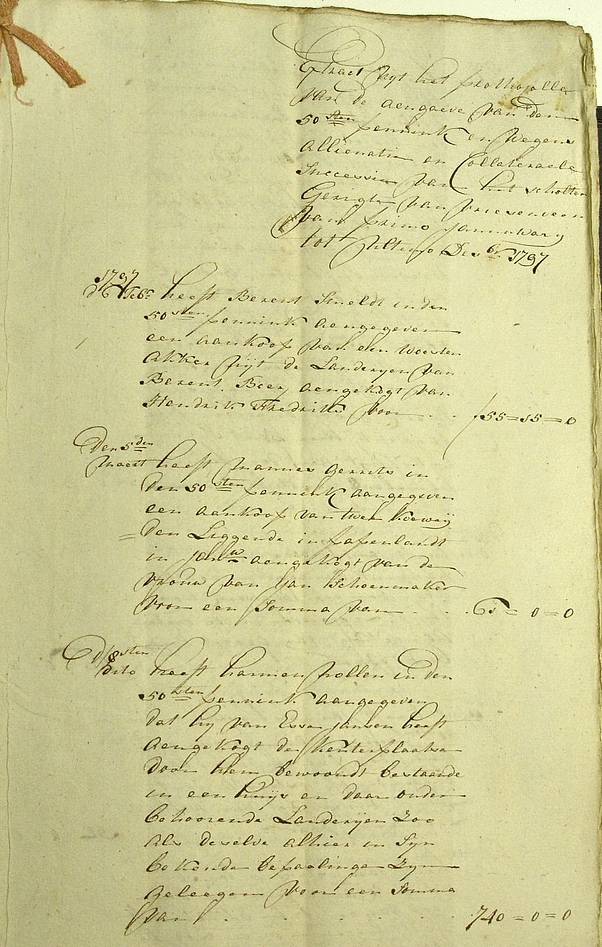 Extract uyt het prothocolle
van de aengaeve van den
50sten pennink en wegens
allienatie en Collateraele
Successien van het scholten
Gerigte van vriesenveen
van primo Januwarij
tot ultimo Decbr 1797
1797
d 6 Febr heeft Berent Smeldt in den
50sten pennink aengegeven
een aankoof van een woesten
akker uyt de Landeryen van
Berent Beer, aengekogt van
Hendrik Fredriks voor . . f 55=15=0
Den 5den
Maert heeft Mannes Gerrits in
den 50sten pennink aangegeven
een aankoof van twee koeweij
den Liggende in
in aengekogt van de
vrouw van Jan Schoenmaker
voor een Somma van . . . 65=0=0
d 18sten
dito heeft Harmen in den
50sten pennink aangegeven
dat hy van Esse Jansen heeft
aengekogt de plaatse
door hem bewoondt bestaende
in een huijs en daar onder
behoorende Landeryen Zoo
als deselve alhier in Syn
bekende bepaelinge Zyn
geleegen voor een Somma
van . . . . . 740=0=0